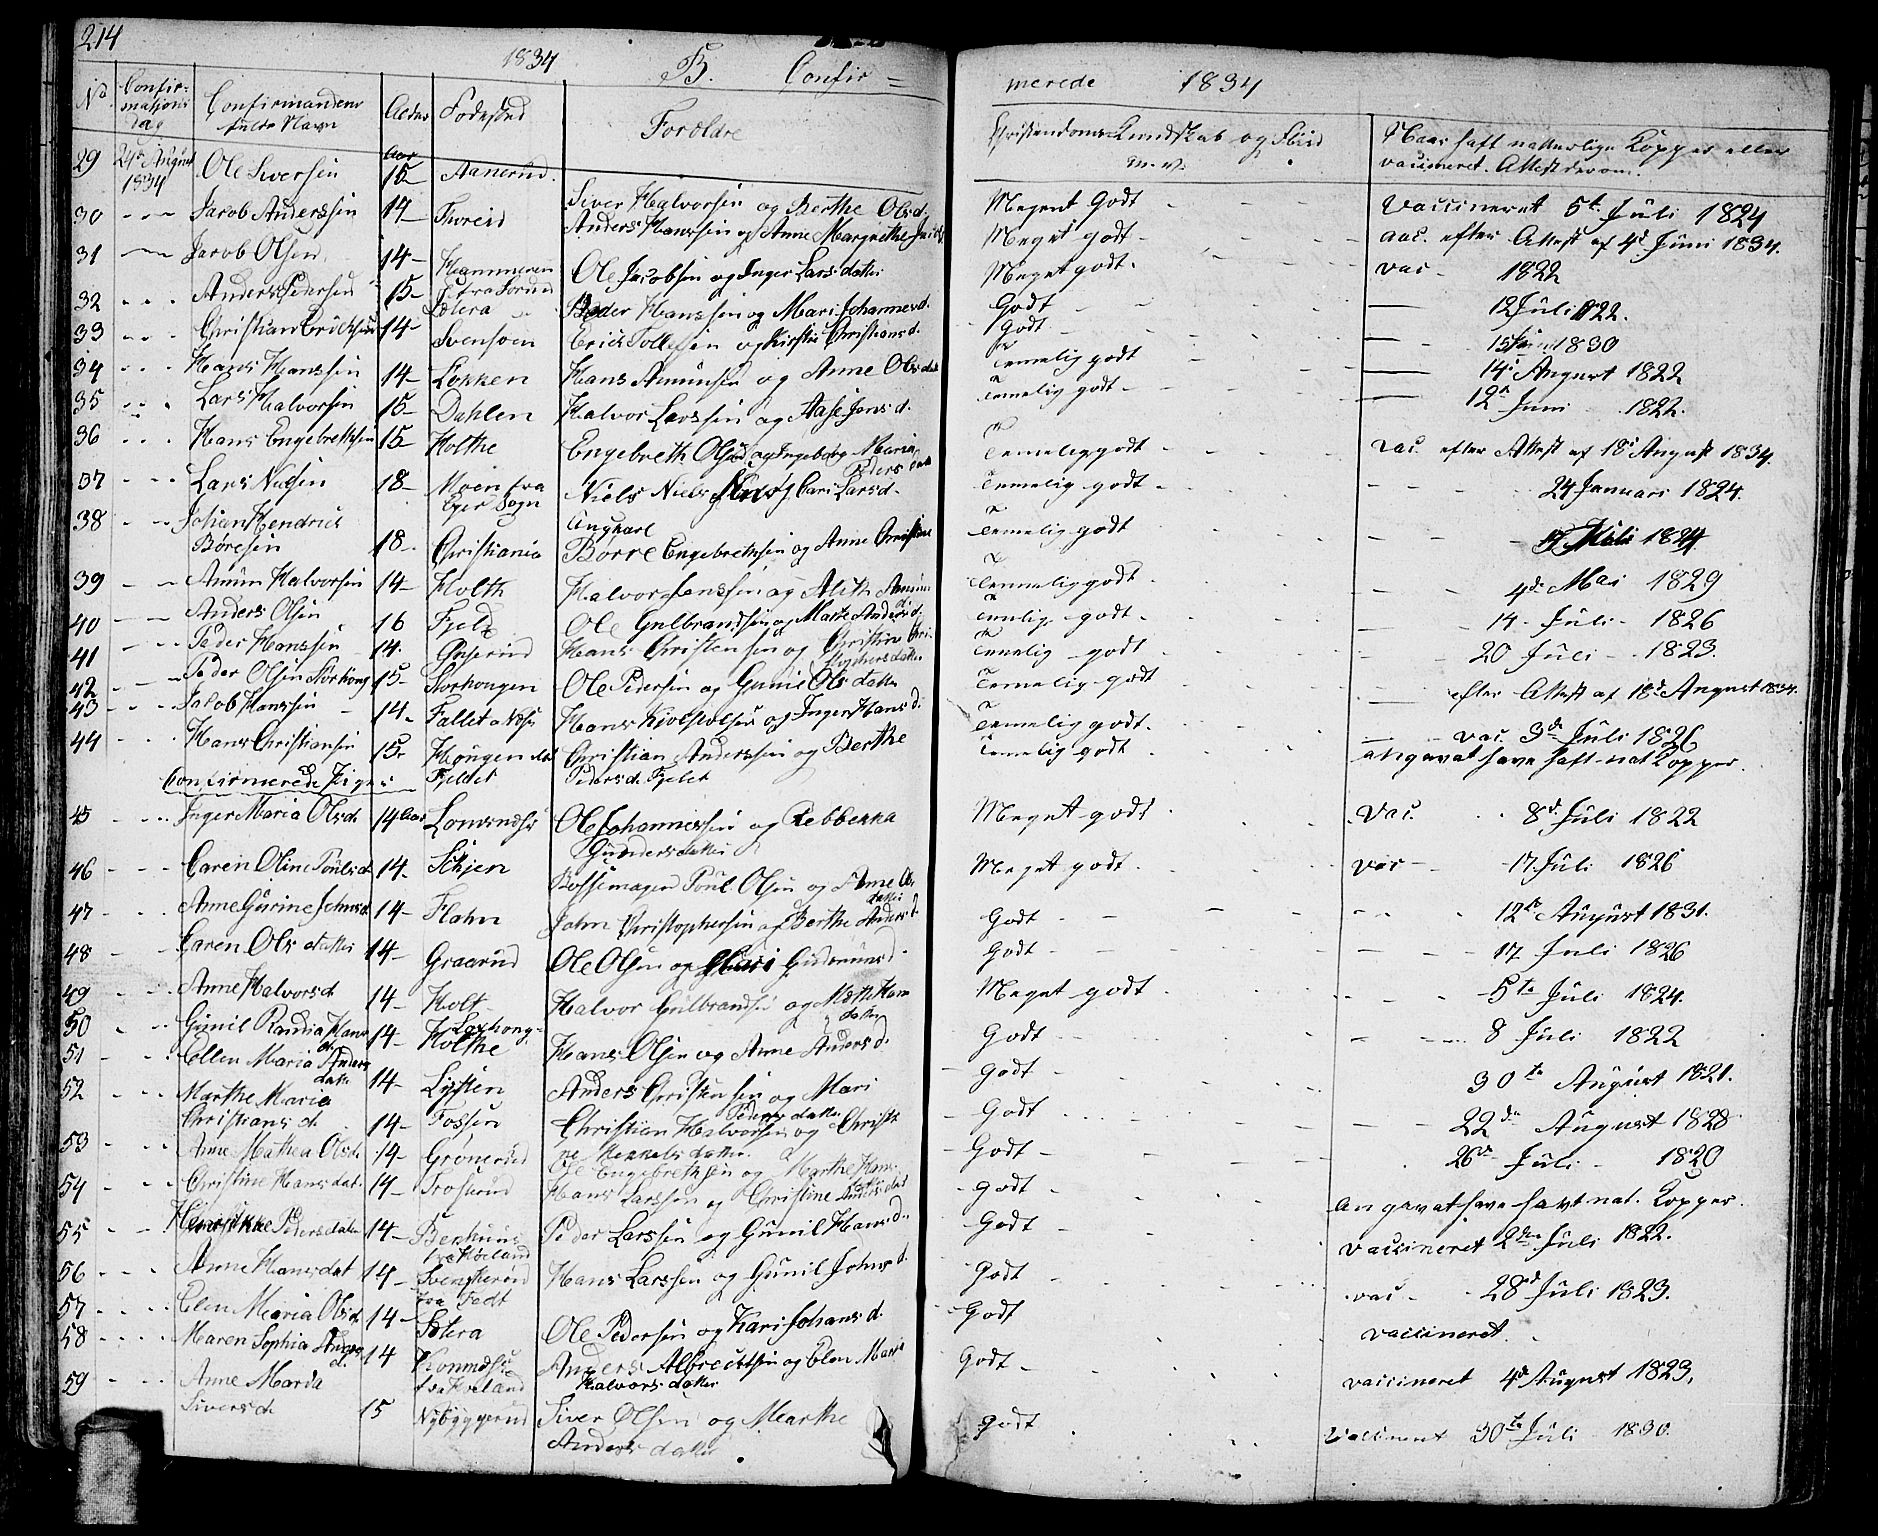 214
1834 B. Confir=
merede 1834
No. Confir-mations dag Confirmandens fulde Navn Alder Fødested Forældre Christendoms-Kundskab og Fliid m.v. Naar haft naturlige Kopper eller vaccineret. Attest derom.
29 24de August 1834 Ole Siversen Aar 15 Aanerud. Siver Halvorsen og Berthe Olsd. Meget Godt Vaccineret 5te Juli 1824
30 Jacob Anderssen 14 Tureid Anders Hanssen og Anne Margrethe Meget godt vac. efter Attest af 4de Juni 1834.
31 Jacob Olsen 14 Hammeren Ole Jacobsen og Inger Larsdatter Meget godt. vac 1822
32 Anders Pedersen 15 Sølera Peder Hanssen og Mari Johannesd. Godt 12 Juli 1822.
33 Christian Ericksen 14 Svensøen Erick Tollefsen og Kirstie Christiansd. Godt 15 1830
34 Hans Hanssen 14 Løkken Hans Amunsen og Anne Olsdat Temelig godt 14de August 1822
35 Lars Halvorsen 15 Dahlen Halvor Larssen og Aase Jensd. Temelig godt 12te Juni 1822.
36 Hans Engebrethsen 15 Holthe Engebreth Olsen og Ingeborg Maria Pedersdat Temelig godt vac. efter Attest af 18de August 1834.
37 Lars Nielsen 18 Moen fra Eger Sogn Niels Nielssen og Cari Larsd. Temelig godt 24 Januari 1824.
38 Johan Hendrick Børesen 18 Christiania Ungkarl Børre Engebrethsen og Anne Christine Temelig godt 1824
39 Amun Halvorsen 14 Holth Halvor Jenssen og Alith Amun d. Temelig godt 4de Mai 1829
40 Anders Olsen 16 Fjeld Ole Gulbrandsen og Marte Andersd. Temelig godt 14 Juli 1826
41 Peder Hanssen 14 Gaserud Hans Christensen og Christine Christophersdatter Temelig godt 20 Juli 1823.
42 Peder Olsen Storhong 15 Storhongen Ole Pedersen og Gunil Olsdatter Temelig godt efter Attest af 18de August 1834.
43 Jacob Hanssen 14 Fallet a Næs Hans Kiølstolsen og Inger Hansd. Temelig godt vac. 3de Juli 1826
44 Hans Christiansen 15 Hongen Fjeldet Christian Anderssen og Berthe Pedersd. Fjelet Temelig godt angavat have haft nat Kopper.
Confirmerede Piger
45 Inger Maria Olsd 14 Aar Lomsnæs Ole Johannessen og Rebbekka Gundersdatter Meget godt Vac. 8d Juli 1822
46 Caren Oline Poulsd 14 Schjen Bøssemager Poul Olsen og Anne Olsdatter Meget godt vac 17 Juli 1826
47 Anne Gurine Johnsd 14 Flahn John Christophersen og Berthe Andersd. Godt 12te August 1831.
48 Caren Olsdatter 14 Graarud Ole Olsen og Mari Gudmunsd. Godt 17 Juli 1826
49 Anne Halvorsd 14 Holt Halvor Gulbrandsen og Mætte Hansdatter Meget godt 5te Juli 1824.
50 Gunil Randia Hansd. 14 Løxhong Holthe Hans Olsen og Anne Andersd. Godt 8 Juli 1822
51 Ellen Maria Andersdatter 14 Lysten Anders Christensen og Mari Pedersdatter Godt 30te August 1821.
52 Marthe Maria Christiansd. 14 Fossen Christian Halvorsen og Christine Mekkelsdatter Godt 22de August 1828
53 Anne Mathea Olsd. 14 Grønerud Ole Engebrethsen og Marthe Hansdatter Godt 26de Juli 1820
54 Christine Hansdat. 14 Troserud Hans Larssen og Christine Andersdat Godt angavat have havt nat. Kopper.
55 Pedersdatter 14 Benhuus fra Høeland Peder Larssen og Gunil Hansd. Godt vaccineret 2den Juli 1822.
56 Anne Hansdat 14 Svenskerud fra Fedt Hans Larssen og Gunil Johnsd. Godt vac 28d Juli 1823.
57 Elen Maria Olsd. 14 Sølera Ole Pedersen og Kari Johansd. Godt vaccineret.
58 Maren Sophia Andersd. 14 Kommæs fra Høeland Anders Albrechtsen og Elen Marie Halvorsdatter Godt vaccineret 4de August 1823.
59 Anne Maria Siversd. 15 Nybyggerud Siver Olsen og Marthe Andersdatter Godt Vaccineret 30te Juli 1830.